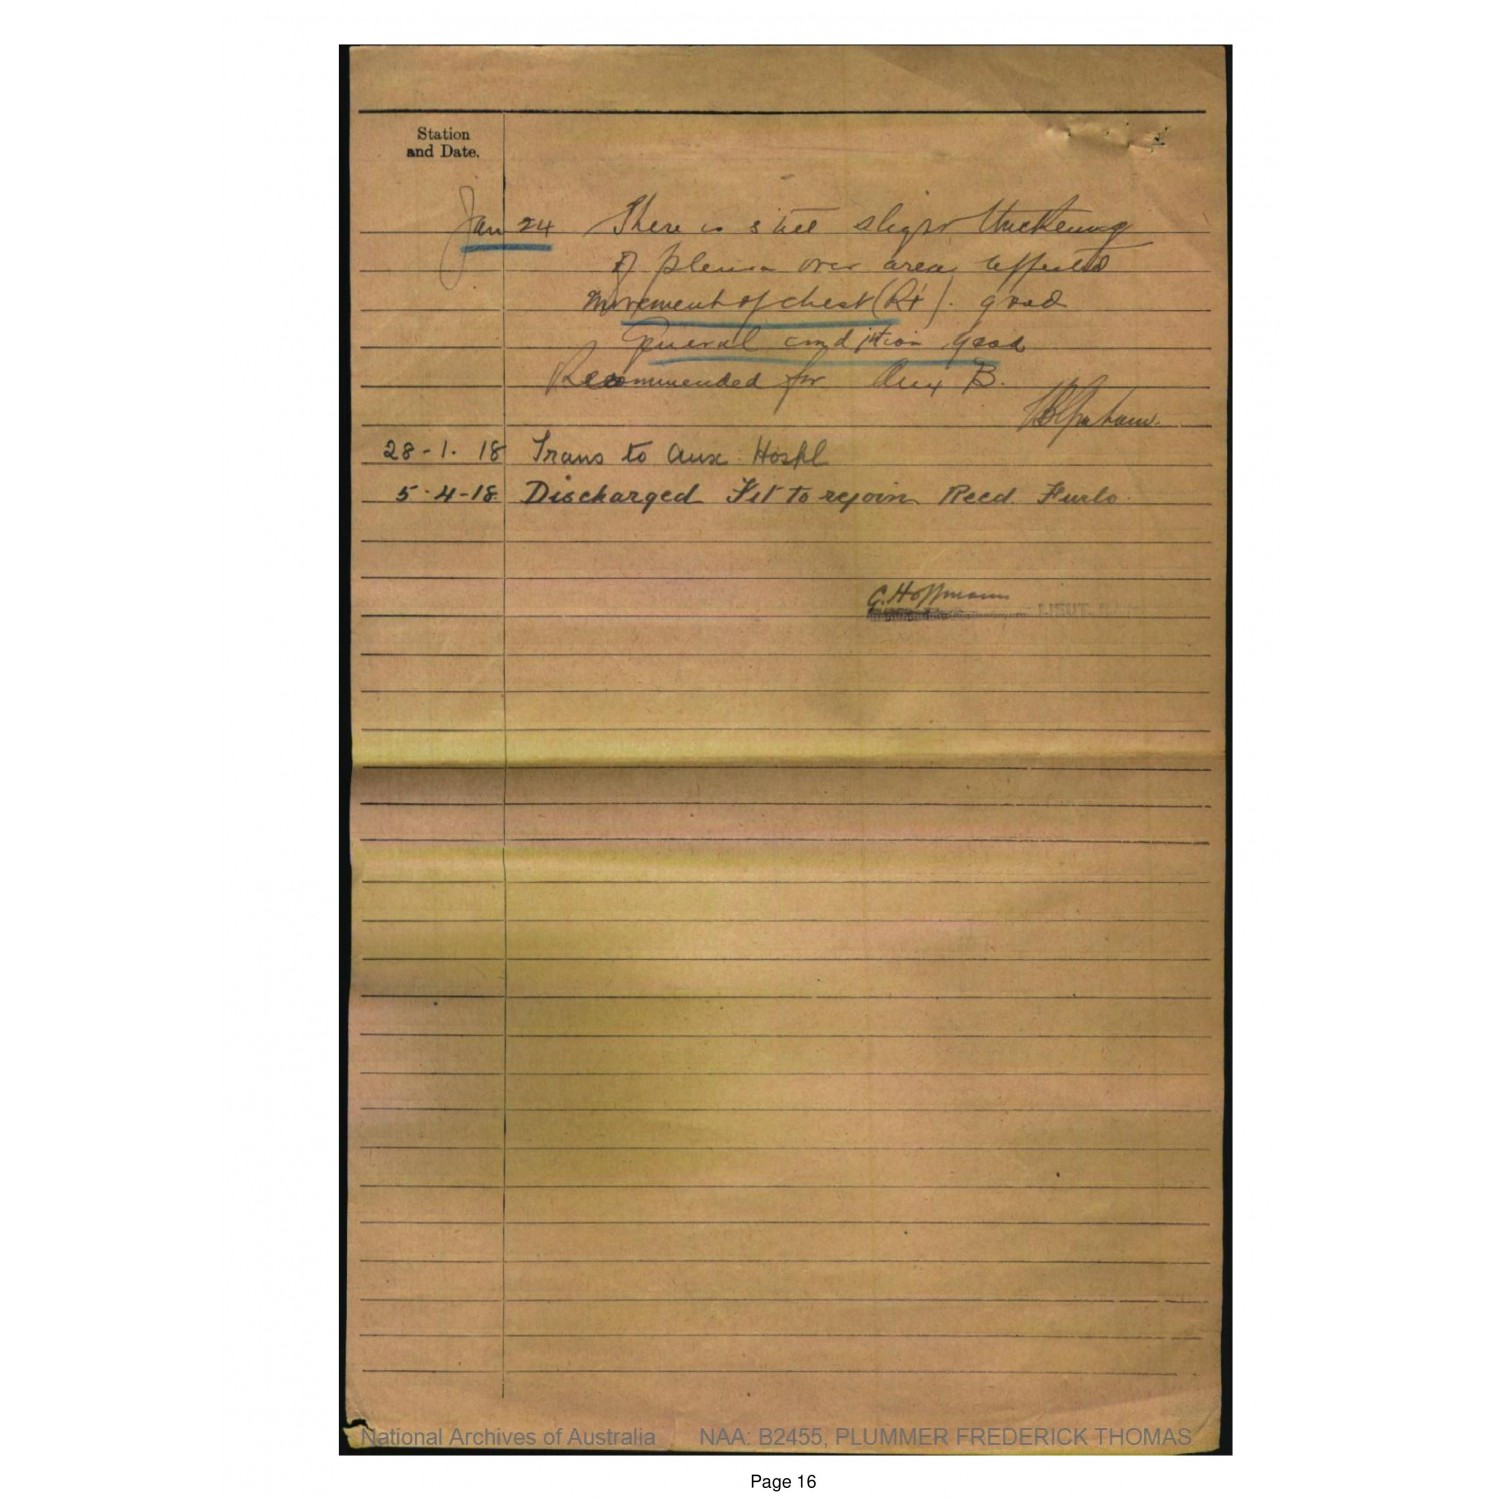 Station
and Date.
Jan 24 There is still slight thickening
of pleura over area affected
movement of chest (Rt). good
General condition good
Recommended for Aux B.
28-1.18 Trans to Aux Hospl
5-4-18 Discharged Fit to rejoin Recd. Furlo.
G. Hoffmann
LIEUT.
National Archives of Australia NAA: B2455, PLUMMER FREDERICK THOMAS
Page 16